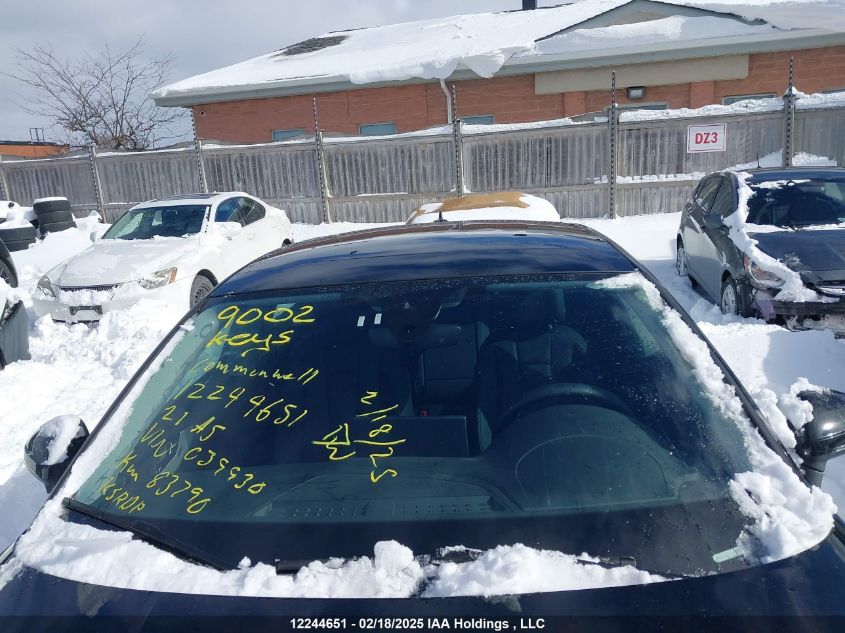 DZ3
9002
Keys
Commonwell
12244651
21 A5
Vin: 039930
Km 83790
2/18/25
12244651 - 02/18/2025 IAA Holdings, LLC